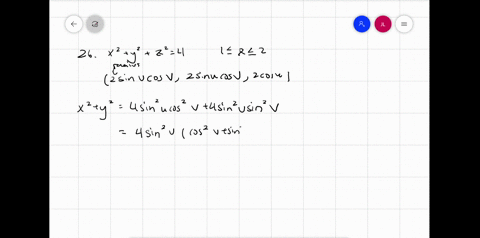 26. x² + y² + z² = 4 1 ≤ z ≤ 2
(2 sin u cos v, 2 sin u cos v, 2 cos u)
x² + y² = 4 sin² u cos² v + 4 sin² u sin² v
= 4 sin² u ( cos² v + sin